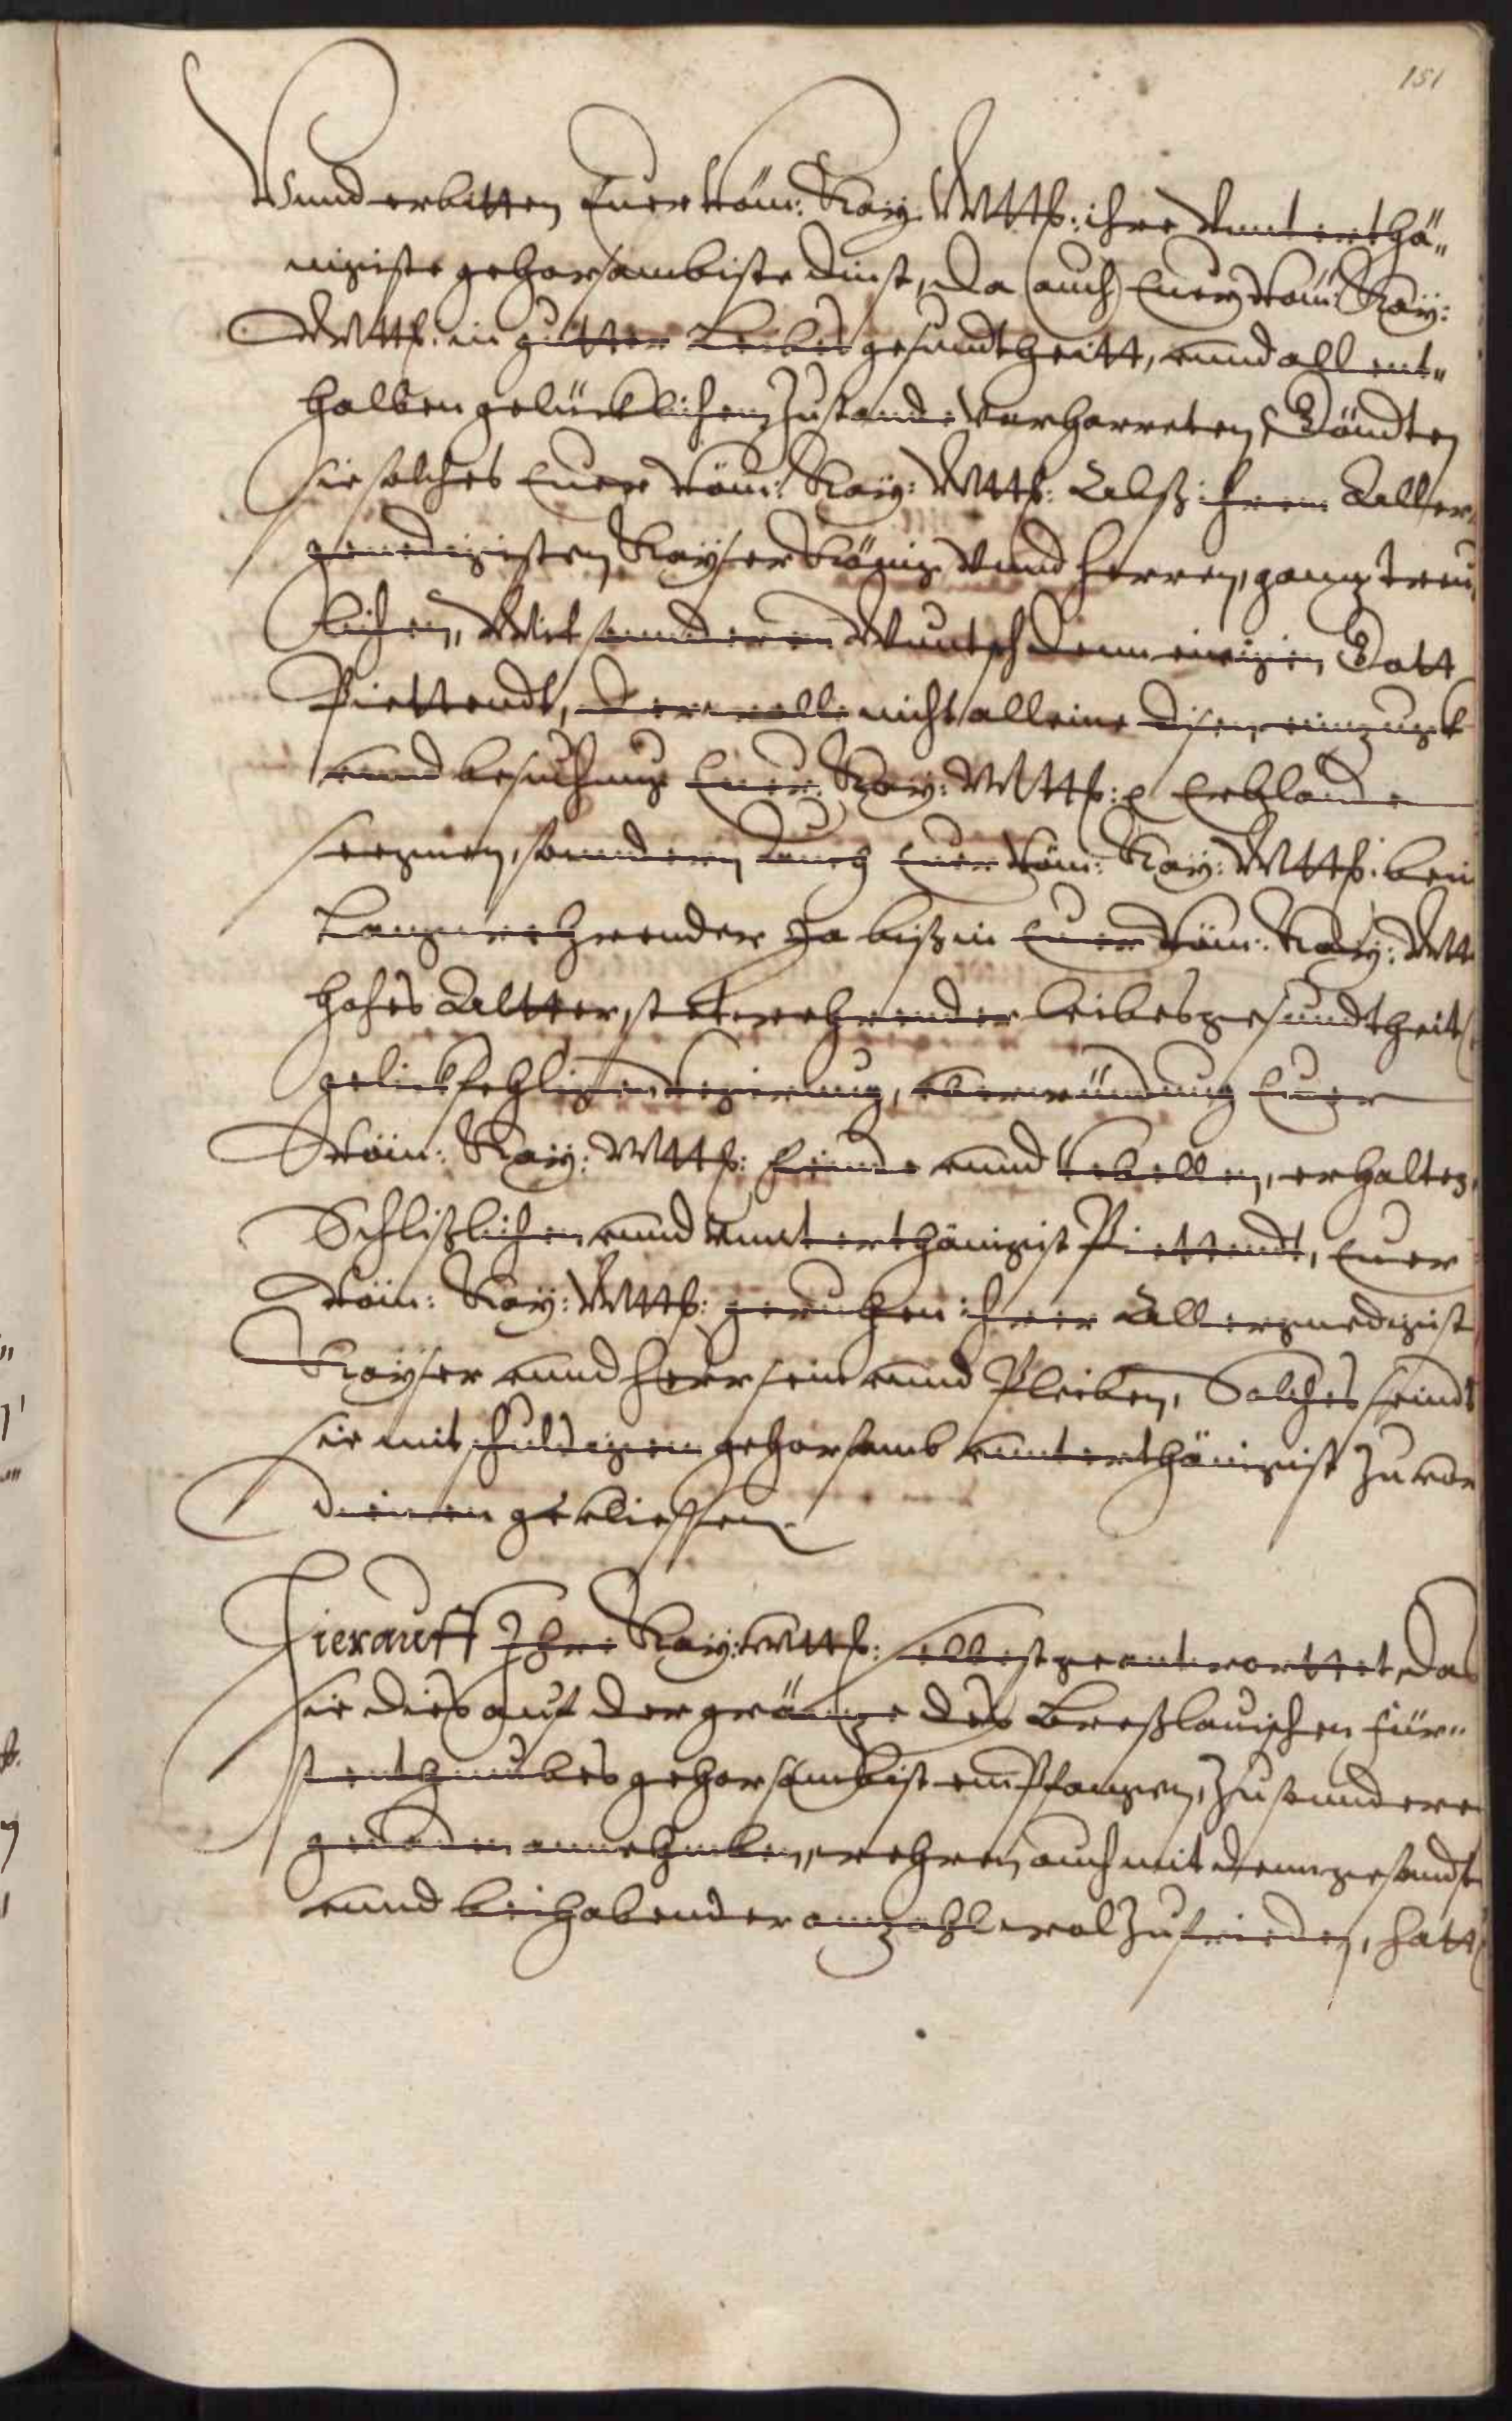 151
Vnnd erbitten Euer Röm: Kay: Mtth: ihre Vnnterthä„
nigiste gehorsambiste dinst, Da auch Euer Röm: Kay:
Mtth: in gutter Leibes gesundtheitt, vnnd allent„
halben gelücklichem Zustande verharreten, Göndten
sie solches Euer Röm: Kay: Mtth: Alß ihrem Aller
genedigisten Kayser König Vnnd Herren, ganz treu
lichen, Mit sonnderem Wuntsch dem ewigen Gott
Piettendt, Der wolle nicht alleine disen einzugk
vnnd besuchung Euer Kay: Mtth: Erblande
segnen, sonndern auch Euer Röm: Kay: Mtth: bei
Langwerhender Ja biß in Euer Röm: Kay: Mtt
hohes Altter, stetwehrender leibesgesundtheit
gelicksehligen regirung, vberwündung Euer
Röm: Kay: Mtth: feinde vnnd Rebellen, erhalten,
Schlißlichen vnnd vnnterthänigist Piettendt, Euer
Röm: Kay: Mtth: geruhen ihrer Allergnedigist
Kayser vnnd Herr sein vnnd Pleiben, Solches seindt
sie mit schuldigem gehorsamb vnnterthänigist Zu vor
dienen geflissen
Hierauff Ihre Kay: Mtth: selbst geantworttet, Das
sie dies auf der gränze des Breßlauischen für„
stenthumbes gehorsambist empfangen, Zu sonndere
genaden annehmben, wehren auch mit dem gesandt
vnnd beihabender anzahl wol Zufrieden, hatt